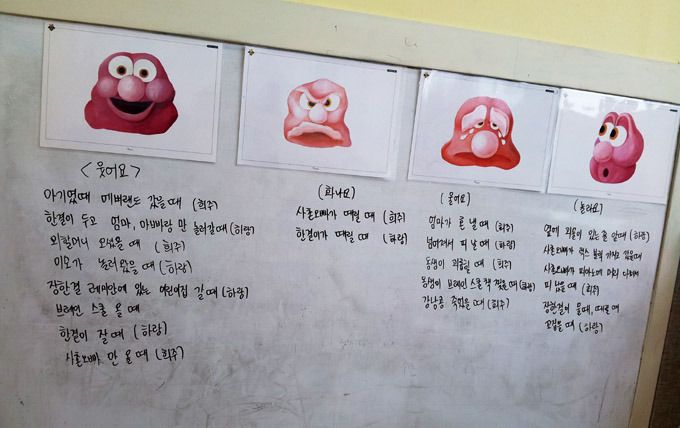 <웃어요>
아기였때 에버랜드 갔을때 (희주)
한결이 두고 엄마, 아빠랑 만 놀러갈때 (하랑)
외할머니 오셨을 때 (희주)
이모가 놀러왔을 때 (하랑)
장한결 레미안에 있는 어린이집 갈 때 (하랑)
브레인 스쿨 올 때
한결이 잘 때 (하랑)
시훈오빠 안 올 때 (희주)
(화나요)
시훈오빠가 때릴 때 (희주)
한결이가 때릴 때 (하랑)
(울어요)
엄마가 혼 낼 때 (희주)
넘어져서 피 날 때 (하랑)
동생이 괴롭힐 때 (희주)
동생이 브레인 스쿨 책 찢을 때 (하랑)
강낭콩 죽었을 때 (희주)
(놀라요)
옆에 괴물이 있는 줄 알 때 (하랑)
시훈오빠가 박스 뒤집어 있을때
시훈오빠가 피아노에 머리 다쳐서
피 났을 때 (희주)
장한결이 물때, 때릴 때
꼬집을 때 (하랑)